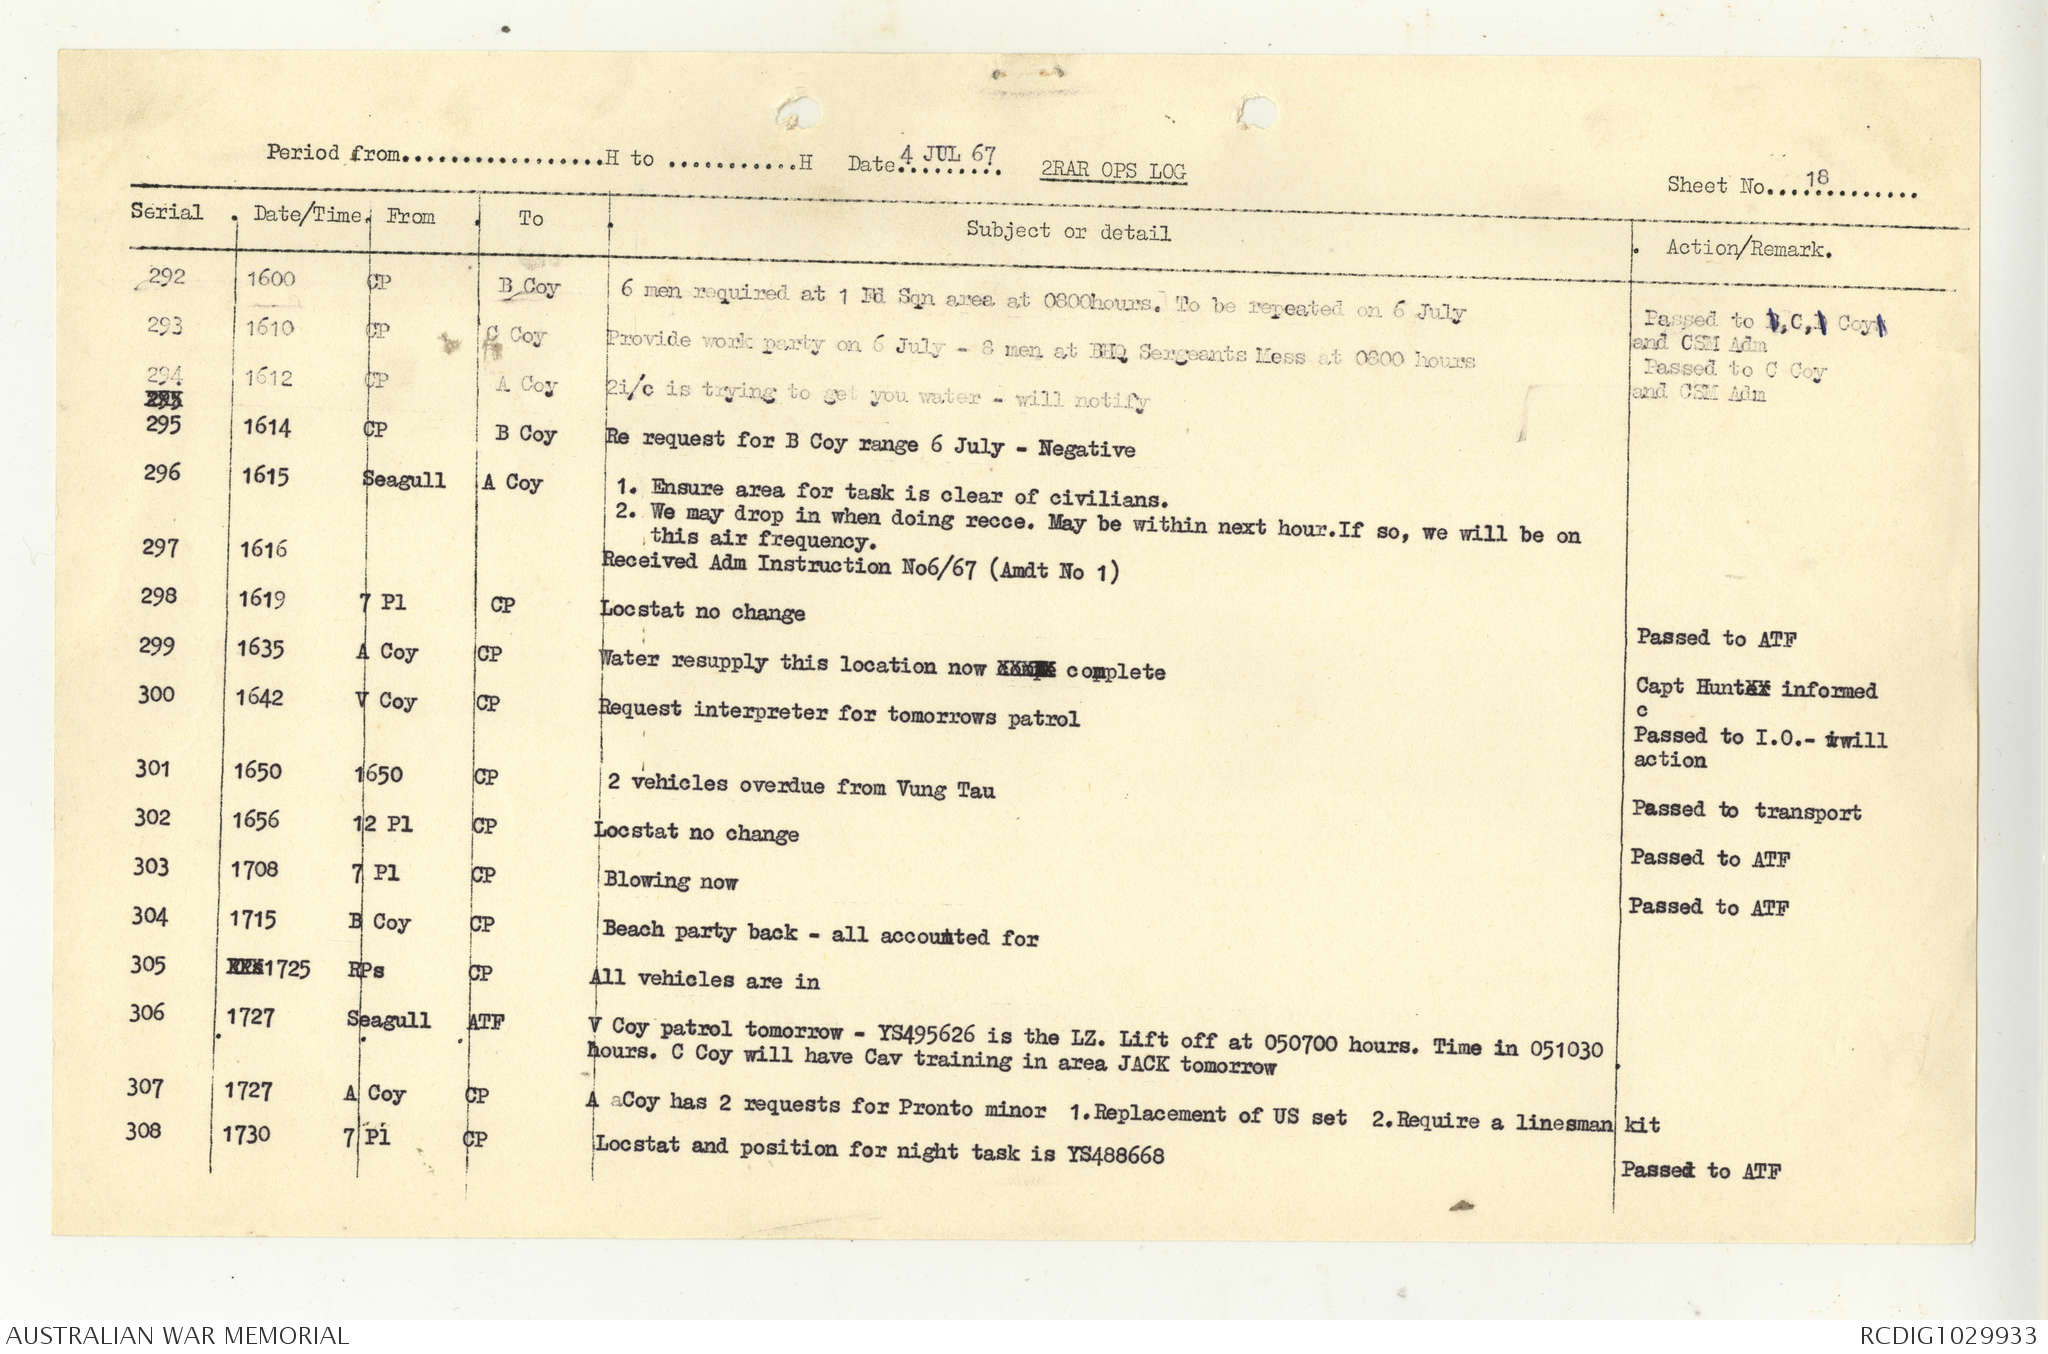 Period from.................H to ...........H Date 4 JUL 67 2RAR OPS LOG
Sheet No. 18
Serial . Date/Time. From . To . Subject or detail . Action/Remark.
292 1600 CP B Coy 6 men required at 1 Fd Sqn area at 0800hours. To be repeated on 6 July
Passed to B,C, Coy
293 1610 CP C Coy Provide work party on 6 July - 8 men at BHQ Sergeants Mess at 0800 hours
and CSM Adm
Passed to C Coy
294 1612 CP A Coy 2i/c is trying to get you water - will notify
and CSM Adm
295
295 1614 CP B Coy Re request for B Coy range 6 July - Negative
296 1615 Seagull A Coy 1. Ensure area for task is clear of civilians.
2. We may drop in when doing recce. May be within next hour.If so, we will be on
this air frequency.
297 1616 Received Adm Instruction No6/67 (Amdt No 1)
298 1619 7 Pl CP Locstat no change
Passed to ATF
299 1635 A Coy CP Water resupply this location now complete
Capt Hunt informed
c
300 1642 V Coy CP Request interpreter for tomorrows patrol
Passed to I.O.- will
action
301 1650 1650 CP 2 vehicles overdue from Vung Tau
Passed to transport
302 1656 12 Pl CP Locstat no change
Passed to ATF
303 1708 7 Pl CP Blowing now
Passed to ATF
304 1715 B Coy CP Beach party back - all accounted for
305 1725 RPs CP All vehicles are in
306 1727 Seagull ATF V Coy patrol tomorrow - YS495626 is the LZ. Lift off at 050700 hours. Time in 051030
hours. C Coy will have Cav training in area JACK tomorrow
307 1727 A Coy CP A aCoy has 2 requests for Pronto minor 1.Replacement of US set 2.Require a linesman kit
308 1730 7 Pl CP Locstat and position for night task is YS488668
Passed to ATF
AUSTRALIAN WAR MEMORIAL
RCDIG1029933